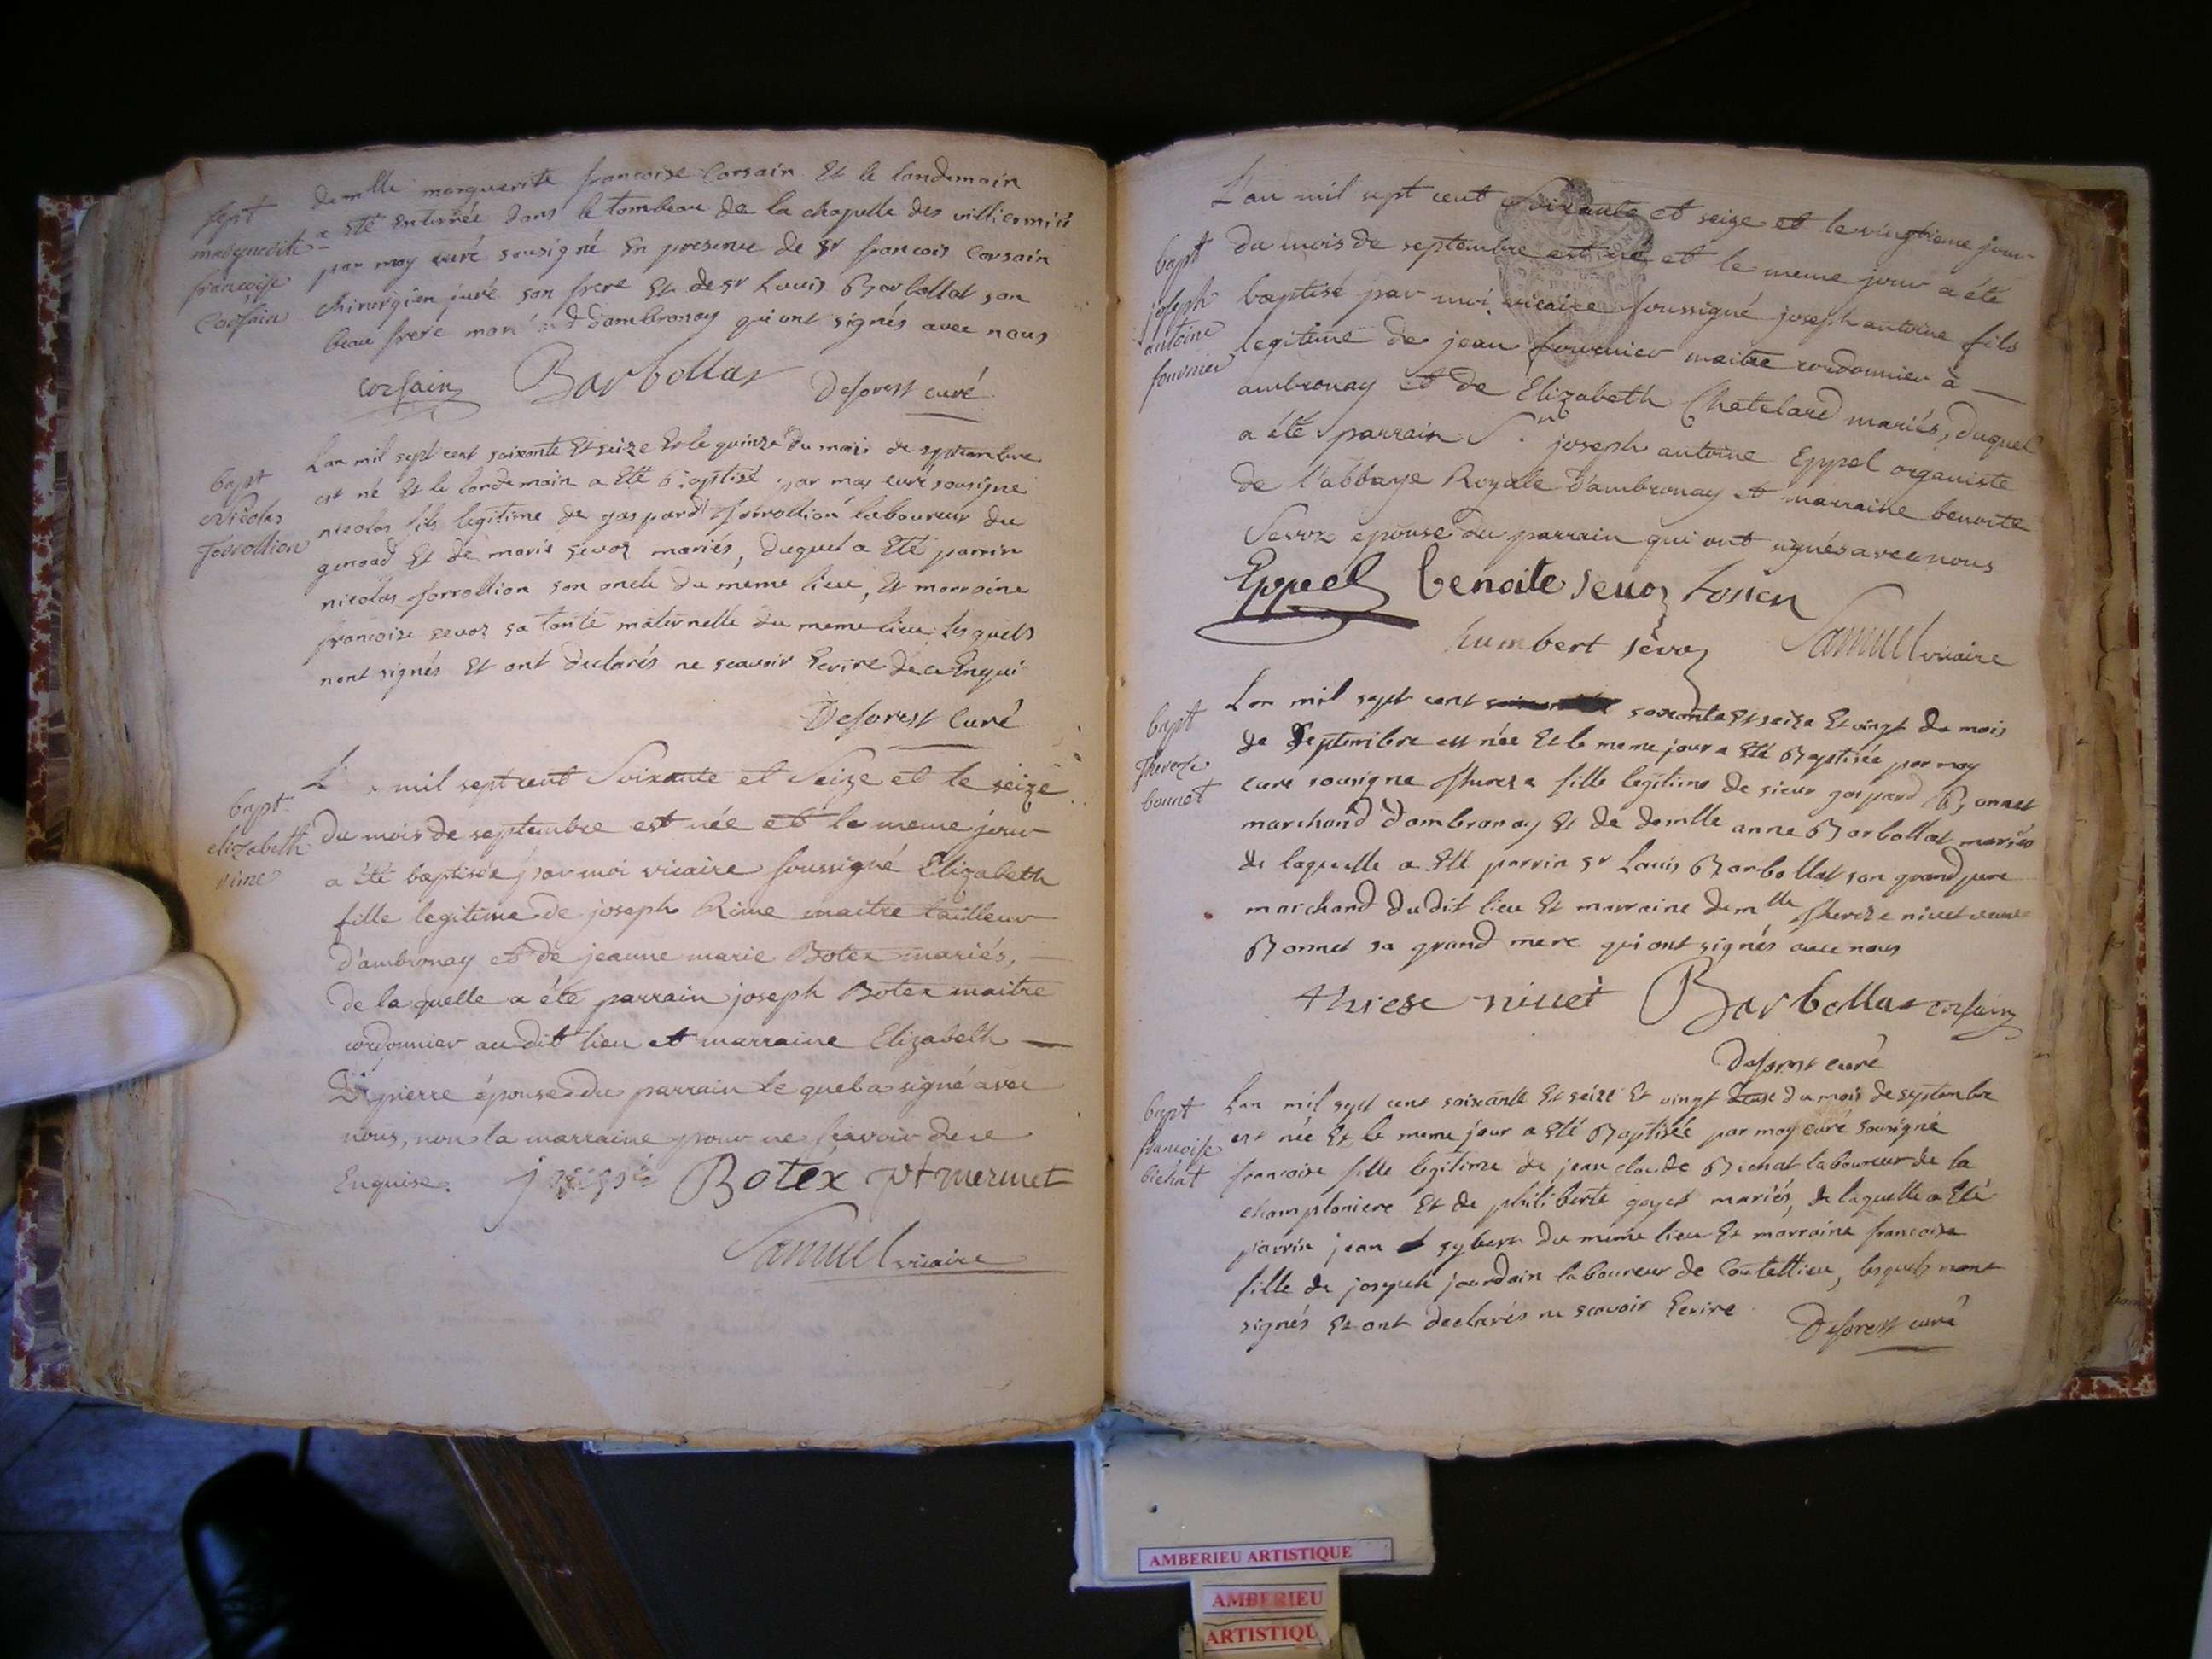 sept
marguerite
francoise
Corsain
demlle marguerite francoise Corsain Et le landemain
a Eté Enterrée dans le tombeau de la chapelle des
par moy curé sousigné En presence de sr francois Corsain
chirurgien juré son frere Et de sr Louis Barbollat son
beau frere mard d'ambronay qui ont signés avec nous
corsain Barbollat Deforest curé
bapt
Nicolas
Lan mil sept cent soixante Et seize Et le quinze du mois de septembre
est né Et le landemain a Eté baptisé par moy curé sousigne
nicolas fils legitime de gaspard laboureur du
genoud Et de marie sevoz mariés, duquel a Eté parrin
nicolas son oncle du meme lieu, Et marraine
francoise sevoz sa tante maternelle du meme lieu lesquels
nont signés Et ont declarés ne scavoir Ecrire de ce Enquis
Deforest Curé
bapt
elizabeth
rime
mil sept cent Soixante et Seize et le seize
du mois de septembre est née et le meme jour
a été baptisée par moi vicaire soussigné Elizabeth
fille legitime de joseph Rime maitre tailleur
d'ambronay et de jeanne marie Botex mariés,
de la quelle a été parrain joseph Botex maitre
cordonnier au dit lieu et marraine Elizabeth
épouse du parrain le quel a signé avec
nous, non la marraine pour ne scavoir de ce
Enquise. joseph Botex mermet
Samuel vicaire
bapt
joseph
antoine
fournier
L'an mil sept cent Soixante et seize et le vingtieme jour
du mois de septembre est né et le meme jour a été
baptisé par moi vicaire soussigné joseph antoine fils
legitime de jean fournier maitre cordonnier à
ambronay et de Elizabeth Chatelard mariés, duquel
a été parrain Sr. joseph antoine Eppel organiste
de l'abbaye Royale d'ambronay et marraine benoite
Sevoz epouse du parrain qui ont signés avec nous
Eppel benoite sevoz
humbert sevoz Samuel vicaire
bapt
Therese
bonnet
Lan mil sept cent soixante Et seize Et vingt du mois
de Septembre est née Et le meme jour a Eté Baptisée par moy
curé sousigne Thereze fille legitime de sieur gaspard Bonnet
marchand d'ambronay Et de demlle anne Barbollat mariés
de laquelle a Eté parrin sr Louis Barbollat son grand pere
marchand dudit lieu Et marraine demlle Thereze nivet veuve
Bonnet sa grand mere qui ont signés avec nous
thiese nivet Barbollat corsain
Deforest curé
bapt
francoise
bichat
Lan mil sept cent soixante Et seize Et vingt deux du mois de septembre
est née Et le meme jour a Eté Baptisée par moy curé sousigné
francoise fille legitime de jean claude Bichat laboureur de la
championiere Et de philiberte goyet mariés, de laquelle a Eté
parrin jean sybert du meme lieu Et marraine francoise
fille de joseph jourdain laboureur de Coutellieu, lesquels nont
signés Et ont declarés ne scavoir Ecrire Deforest curé
AMBERIEU ARTISTIQUE
AMBERIEU
ARTISTIQU